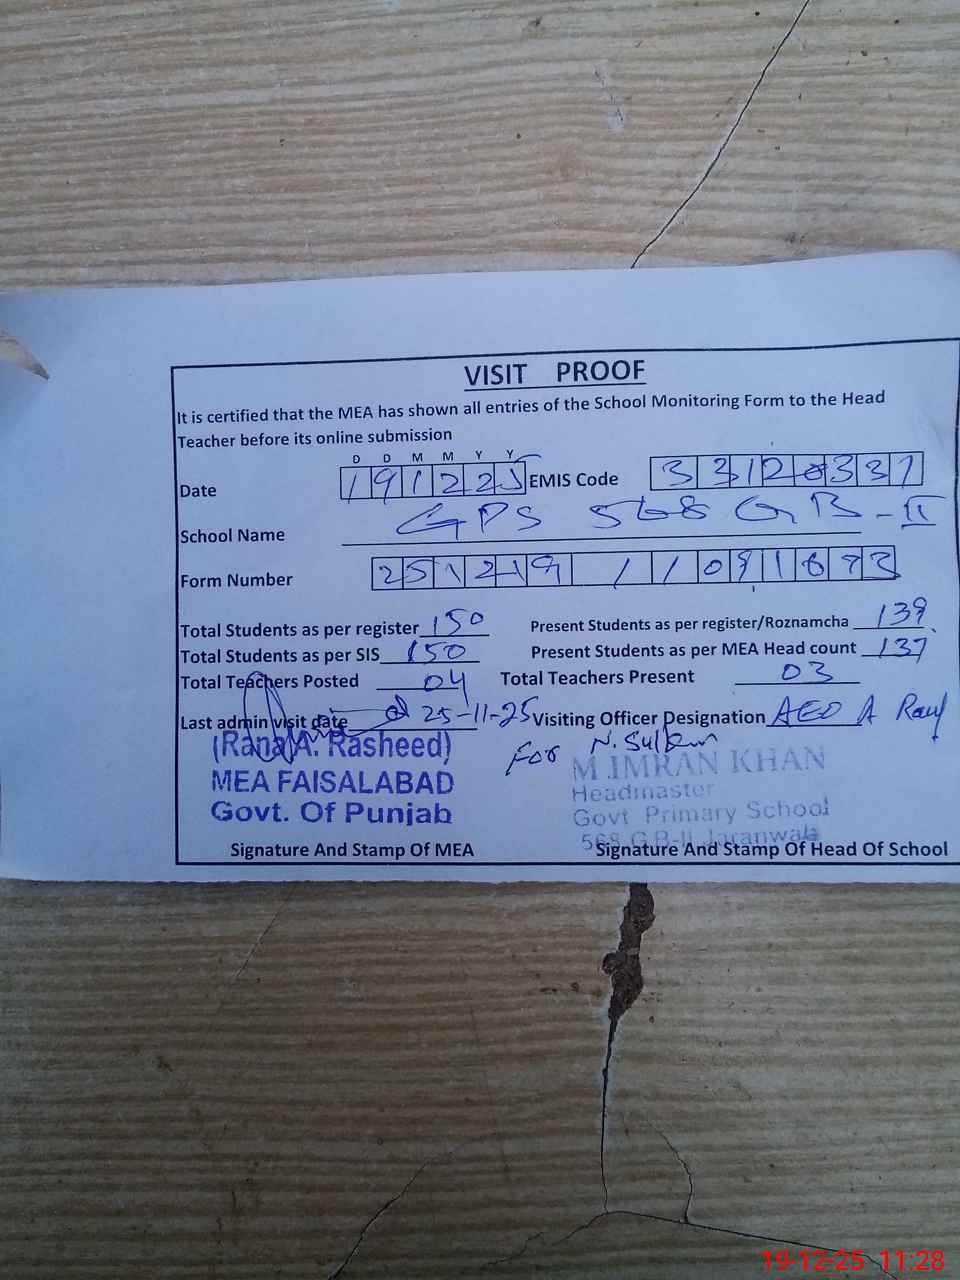 VISIT PROOF
It is certified that the MEA has shown all entries of the School Monitoring Form to the Head
Teacher before its online submission
D D M M Y Y
Date 191225 EMIS Code 33120337
School Name GPS 568 GB-II
Form Number
Total Students as per register 150 Present Students as per register/Roznamcha 139
Total Students as per SIS 150 Present Students as per MEA Head count 137
Total Teachers Posted 04 Total Teachers Present 03
Last admin visit date 25-11-25 Visiting Officer Designation AEO A Rauf
(Rana A. Rasheed) For
MEA FAISALABAD M IMRAN KHAN
Govt. Of Punjab Headmaster
Govt Primary School
568 G.B-II Jaranwala
Signature And Stamp Of MEA Signature And Stamp Of Head Of School
19-12-25 11:28